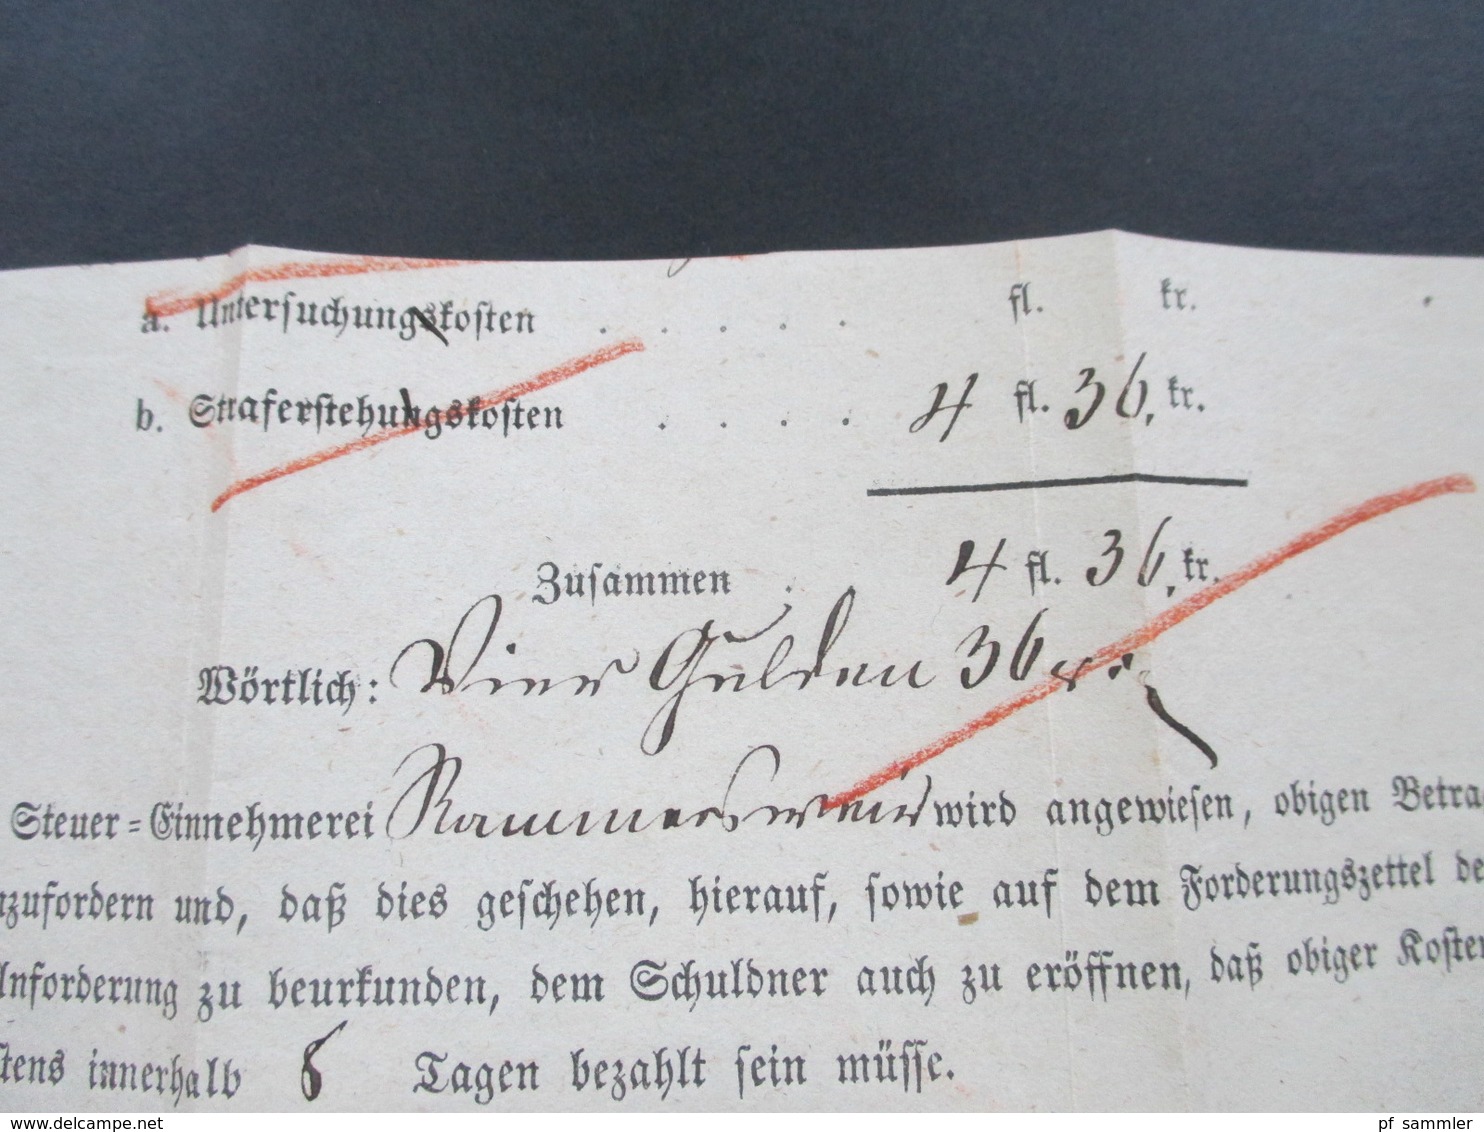 a. Untersuchungskosten . . . . . fl. kr.
b. Straferstehungskosten . . . . 4 fl. 36, kr.
Zusammen . 4 fl. 36, kr.
Wörtlich: Vier Gulden 36
Steuer-Einnehmerei Rammersweier wird angewiesen, obigen Betra
nzufordern und, daß dies geschehen, hierauf, sowie auf dem Forderungszettel de
Anforderung zu beurkunden, dem Schuldner auch zu eröffnen, daß obiger Kosten
stens innerhalb 8 Tagen bezahlt sein müsse.
www.delcampe.net
pf_sammler